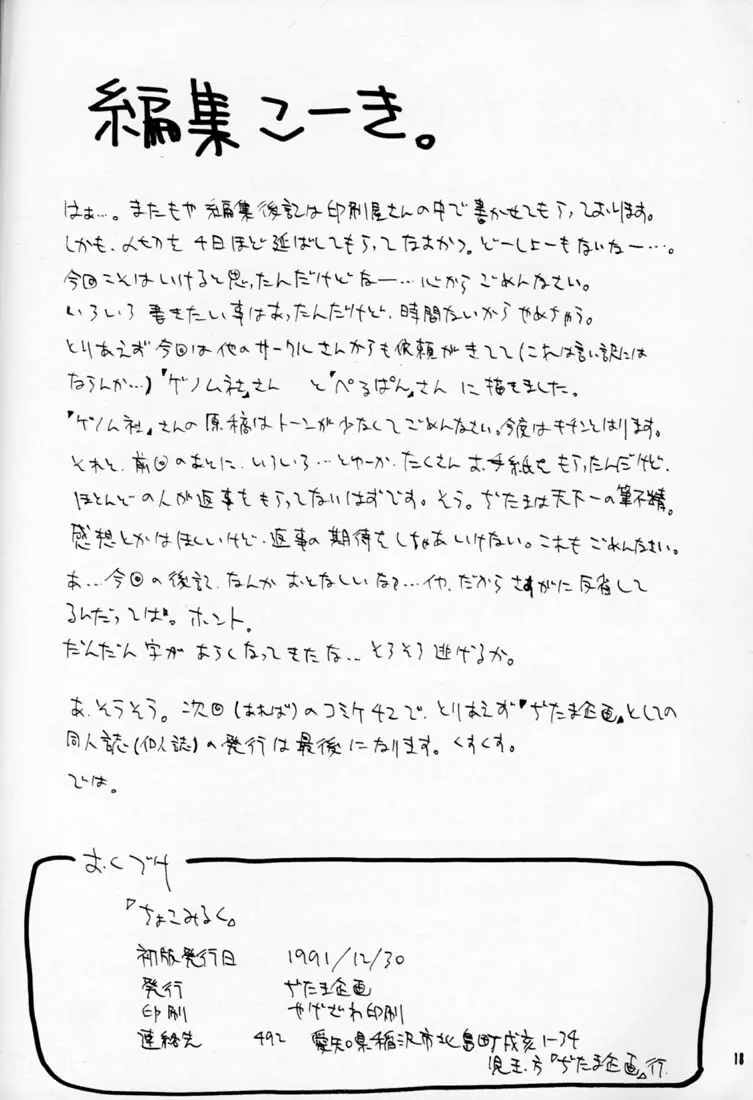 編集こーき。
はぁ…。またもや編集後記は印刷屋さんの中で書かせてもらっております。
しかも、〆切を4日ほど延ばしてもらってなおかつ。どーしよーもないなー…。
今回こそはいけると思ったんだけどなー…心からごめんなさい。
いろいろ書きたい事はあったんだけど、時間ないからやめちゃう。
とりあえず今回は他のサークルさんからも依頼がきてて(これは言い訳には
ならんか…)『ゲノム社』さん と『ぺるぱん』さん に描きました。
『ゲノム社』さんの原稿はトーンが少なくてごめんなさい。今度はキチンとはります。
それと、前回のあとに、いろいろ…とゆーか、たくさんお手紙をもらったんだけど、
ほとんどの人が返事をもらってないはずです。そう。ぢたまは天下一の筆不精。
感想とかはほしいけど、返事の期待をしちゃあいけない。これもごめんなさい。
あ…今回の後記、なんかおとなしいなぁ…イヤ、だからさすがに反省して
るんだってば。ホント。
だんだん字があらくなってきたな…そろそろ逃げるか。
あ、そうそう。次回(あれば)のコミケ42で、とりあえず『ぢたま企画』としての
同人誌(個人誌)の発行は最後になります。くすくす。
では。
おくづけ
『ちょこみるく』
初版発行日 1991/12/30
発行 ぢたま企画
印刷 やげざわ印刷
連絡先 492 愛知県稲沢市北島町戌亥1-34
児玉方『ぢたま企画』行
18